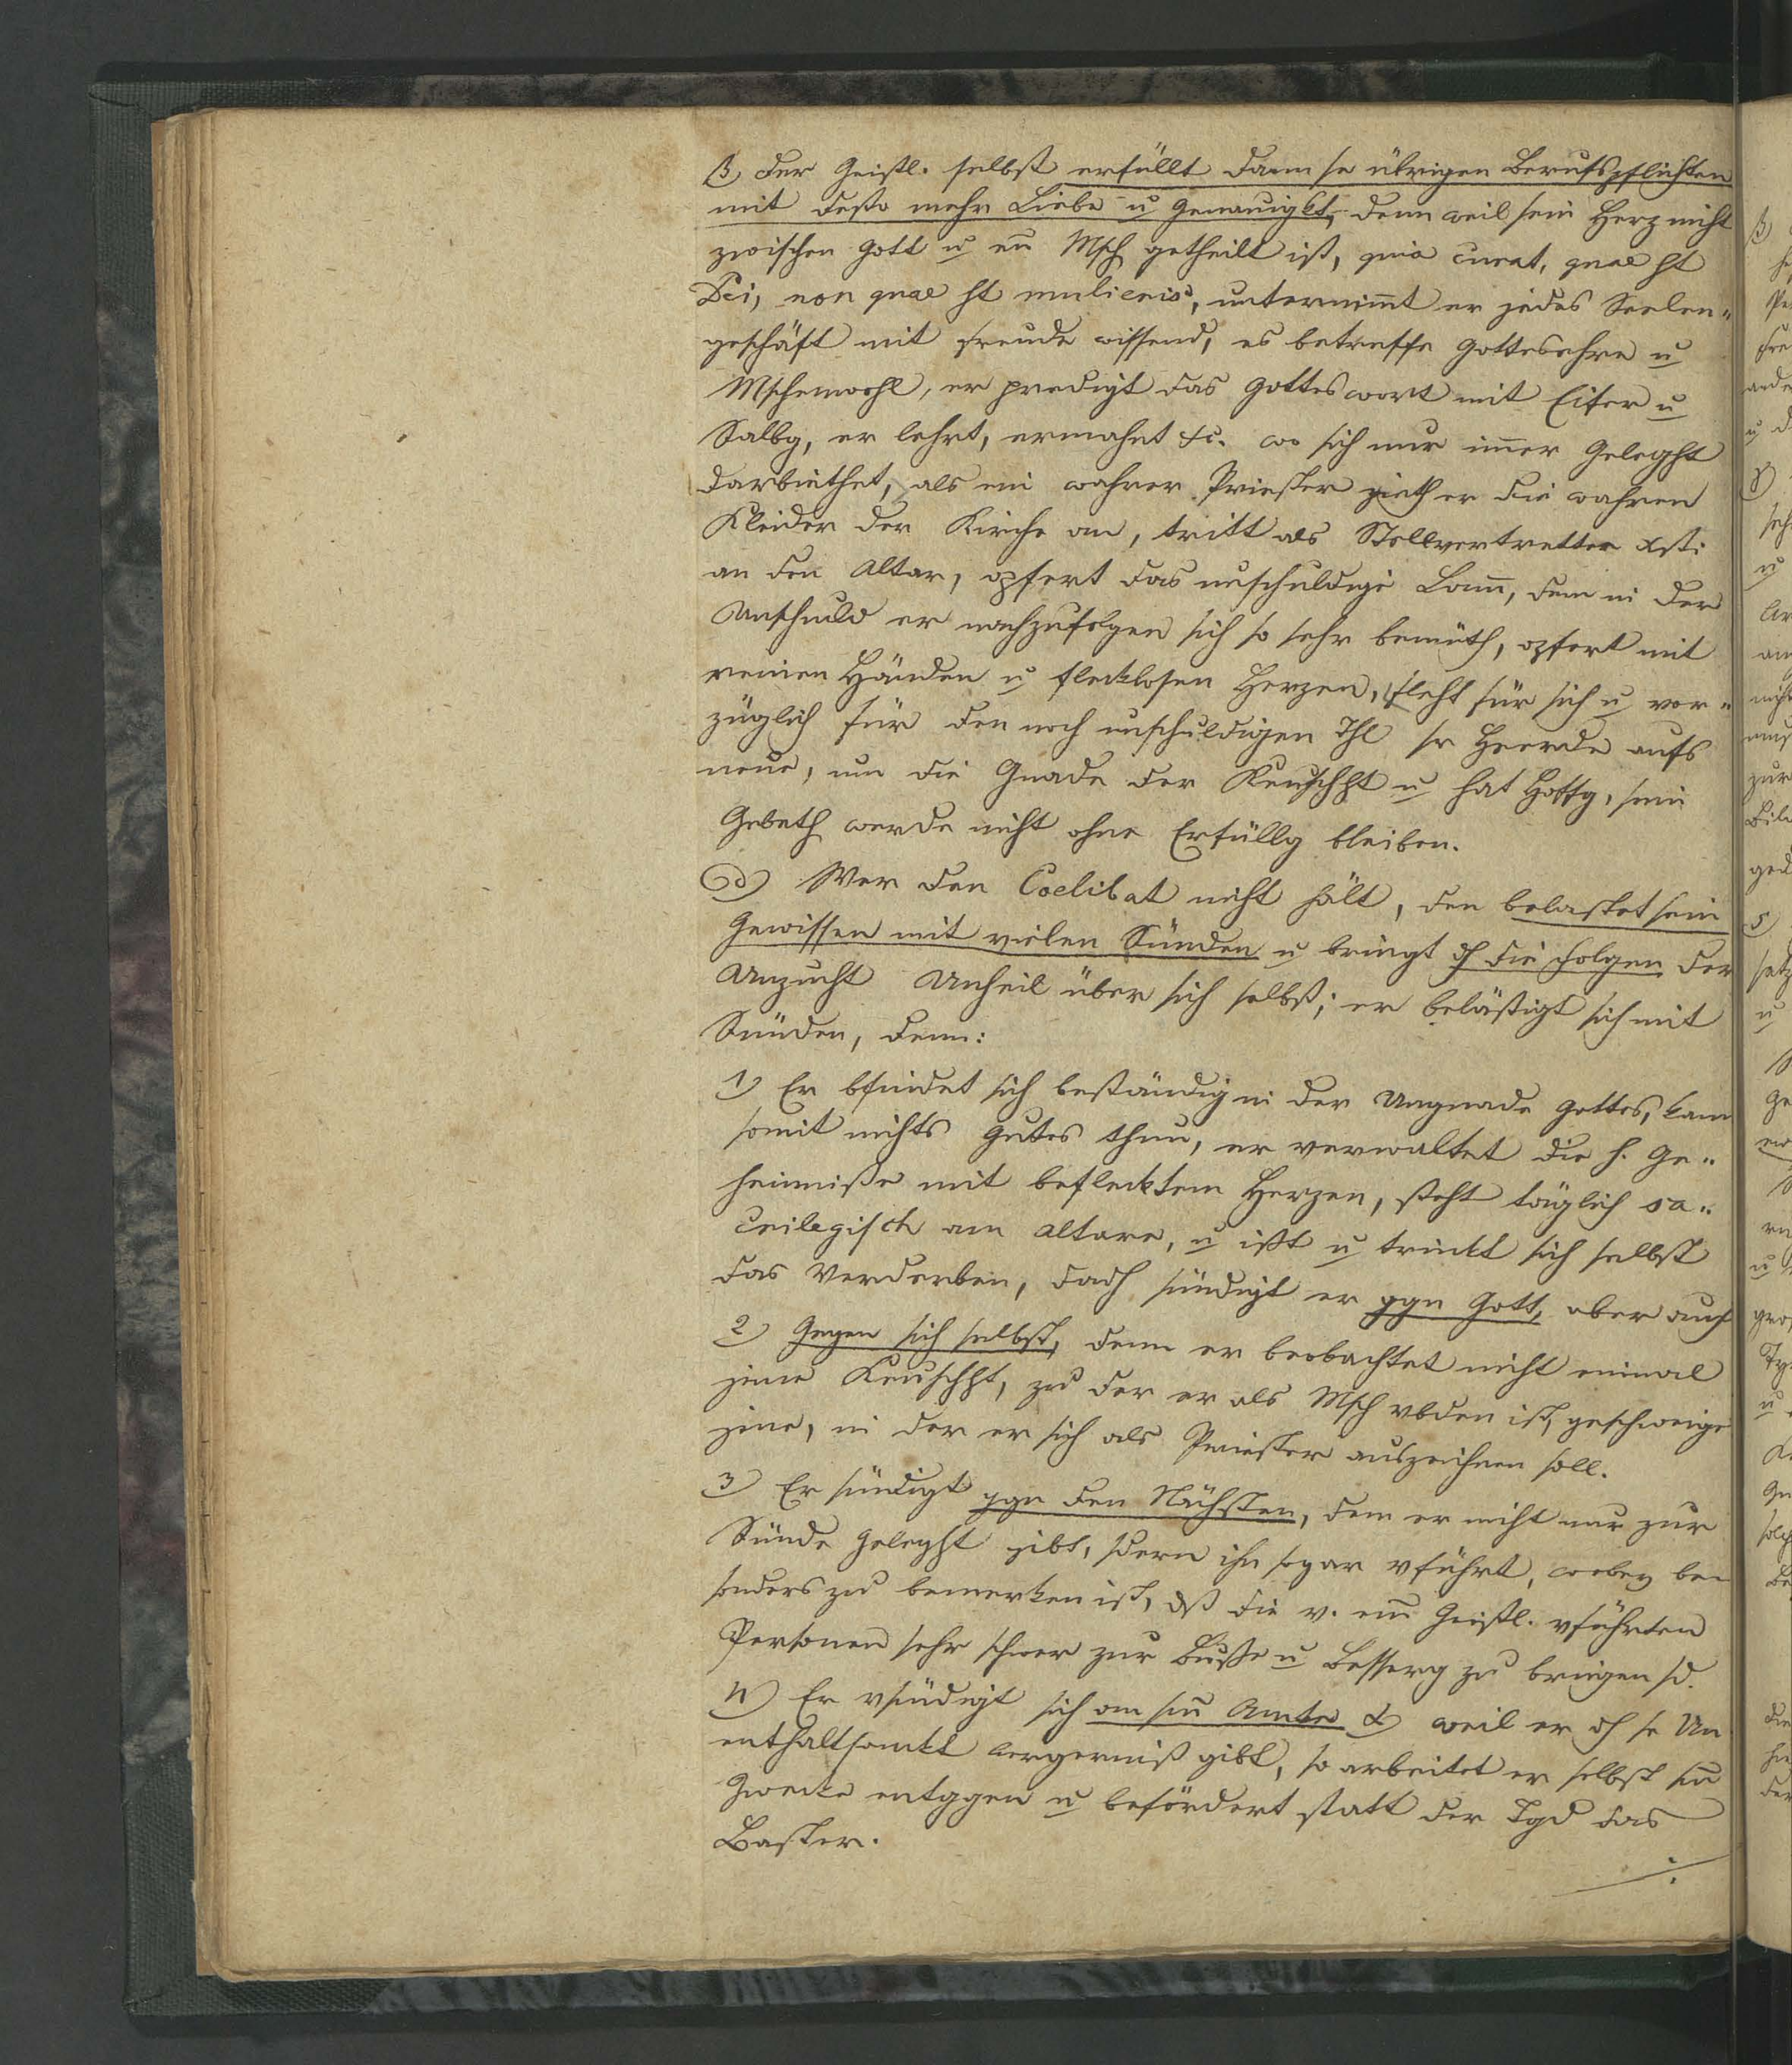 β) der Geistl. selbst erfüllt dann se übrigen Berufspflichten
mit desto mehr Liebe u Genauigkt, denn weil sein Herz nicht
zwischen Gott u en Msch getheilt ist, quia curat, quae st
Dei, non quae st mulieris, unternim̄t er jedes Seelen„
geschäft mit Freude wissend, es betreffe Gottesehre u
Mschenwohl, er predigt das Gotteswort mit Eifer u
Salbg, er lehrt, ermahnt &c. wo sich nur im̄er Geleght
darbiethet, als ein wahrer Priester zieht er die wahren
Kleider der Kirche an, tritt als Stellvertretter Xsti
an den Altar, opfert das unschuldige Lam̄, dem in der
Unschuld er nachzufolgen sich so sehr bemüth, opfert mit
reinen Händen u flecklosen Herzen, fleht für sich u vor„
züglich für den noch unschuldigen Thl sr Heerde aufs
neue, um die Gnade der Keuschht u hat Hoffg, sein
Gebeth werde nicht ohne Erfüllg bleiben.
d) Wer den Coelibat nicht hält, der belastet sein
Gewissen mit vielen Sünden u bringt dh die Folgen der
Unzucht Unheil über sich selbst; er belästigt sich mit
Sünden, denn:
1) Er bfindet sich beständig in der Ungnade Gottes, kann
somit nichts Gutes thun, er verwaltet die h. Ge„
heimniße mit beflecktem Herzen, steht täglich sa„
crilegisch am Altare, u ißt u trinkt sich selbst
das Verderben, dadh sündigt er ggn Gott, aber auch
2) Gegen sich selbst, denn er beobachtet nicht einmal
jene Keuschht, zu der er als Msch vbden ist, geschweige
jene, in der er sich als Priester auszeichnen soll.
3) Er sündigt ggn den Nächsten, dem er nicht nur zur
Sünde Geleght gibt, sdern ihn sogar vführt, wobey be
sonders zu bemerken ist, dß die v. em̄ Geistl. vführten
Personen sehr schwer zur Buße u Besserg zu bringen sd.
4) Er vsündigt sich an sm̄ Amte α) weil er dh se Un
enthaltsamkt Aergerniß gibt, so arbeitet er selbst sm̄
Zwecke entggen u befördert statt der Tgd das
Laster.